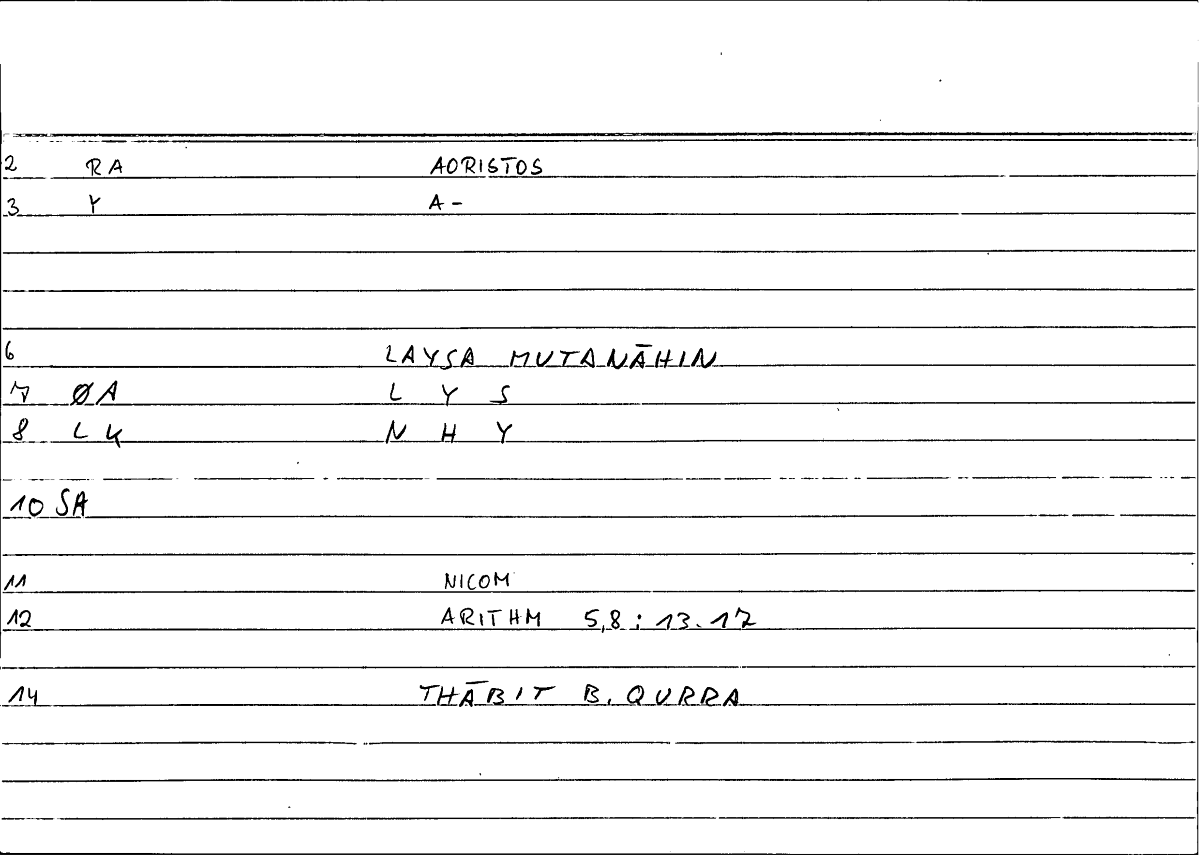 2 RA AORISTOS
3 Y A-
6 LAYSA MUTANĀHIN
7 ØA L Y S
8 LK N H Y
10 SA
11 NICOM
12 ARITHM 5,8 : 13.17
14 THĀBIT B. QURRA